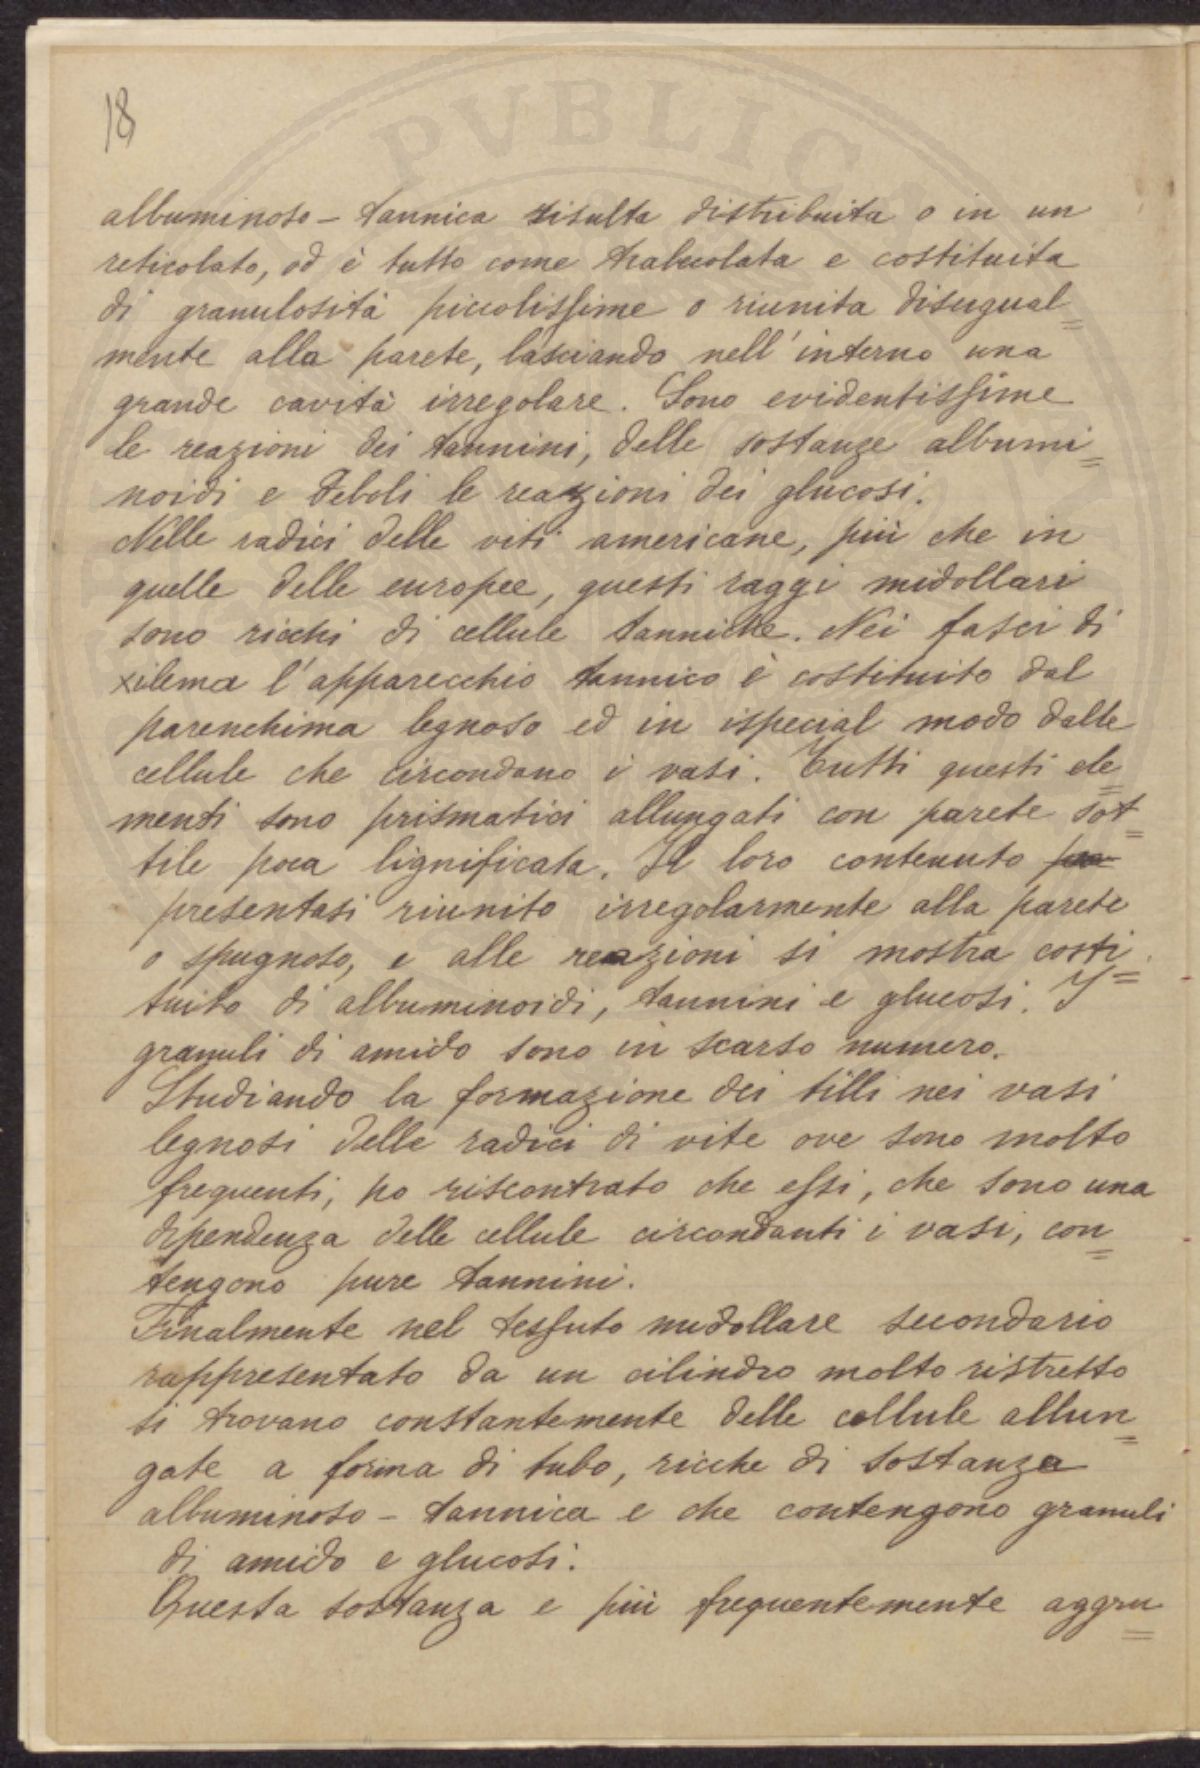 PVBLIC
18
albuminoso - tannica risulta distribuita o in un
reticolato, od è tutto come trabecolata e costituita
di granulosità piccolissime o riunita disugual=
mente alla parete, lasciando nell'interno una
grande cavità irregolare. Sono evidentissime
le reazioni dei tannini, delle sostanze albumi=
noidi e deboli le reazioni dei glucosi.
Nelle radici delle viti americane, più che in
quelle delle europee, questi raggi midollari
sono ricchi di cellule tanniche. Nei fasci di
xilema l'apparecchio tannico è costituito dal
parenchima legnoso ed in ispecial modo dalle
cellule che circondano i vasi. Tutti questi ele=
menti sono prismatici allungati con parete sot=
tile poca lignificata. Il loro contenuto
presentasi riunito irregolarmente alla parete
o spugnoso, e alle reazioni si mostra costi=
tuito di albuminoidi, tannini e glucosi. I
granuli di amido sono in scarso numero.
Studiando la formazione dei tilli nei vasi
legnosi delle radici di vite ove sono molto
frequenti, ho riscontrato che essi, che sono una
dipendenza delle cellule circondanti i vasi, con=
tengono pure tannini.
Finalmente nel tessuto midollare secondario
rappresentato da un cilindro molto ristretto
si trovano constantemente delle cellule allun=
gate a forma di tubo, ricche di sostanza
albuminoso - tannica e che contengono granuli
di amido e glucosi.
Questa sostanza e più frequentemente aggru=